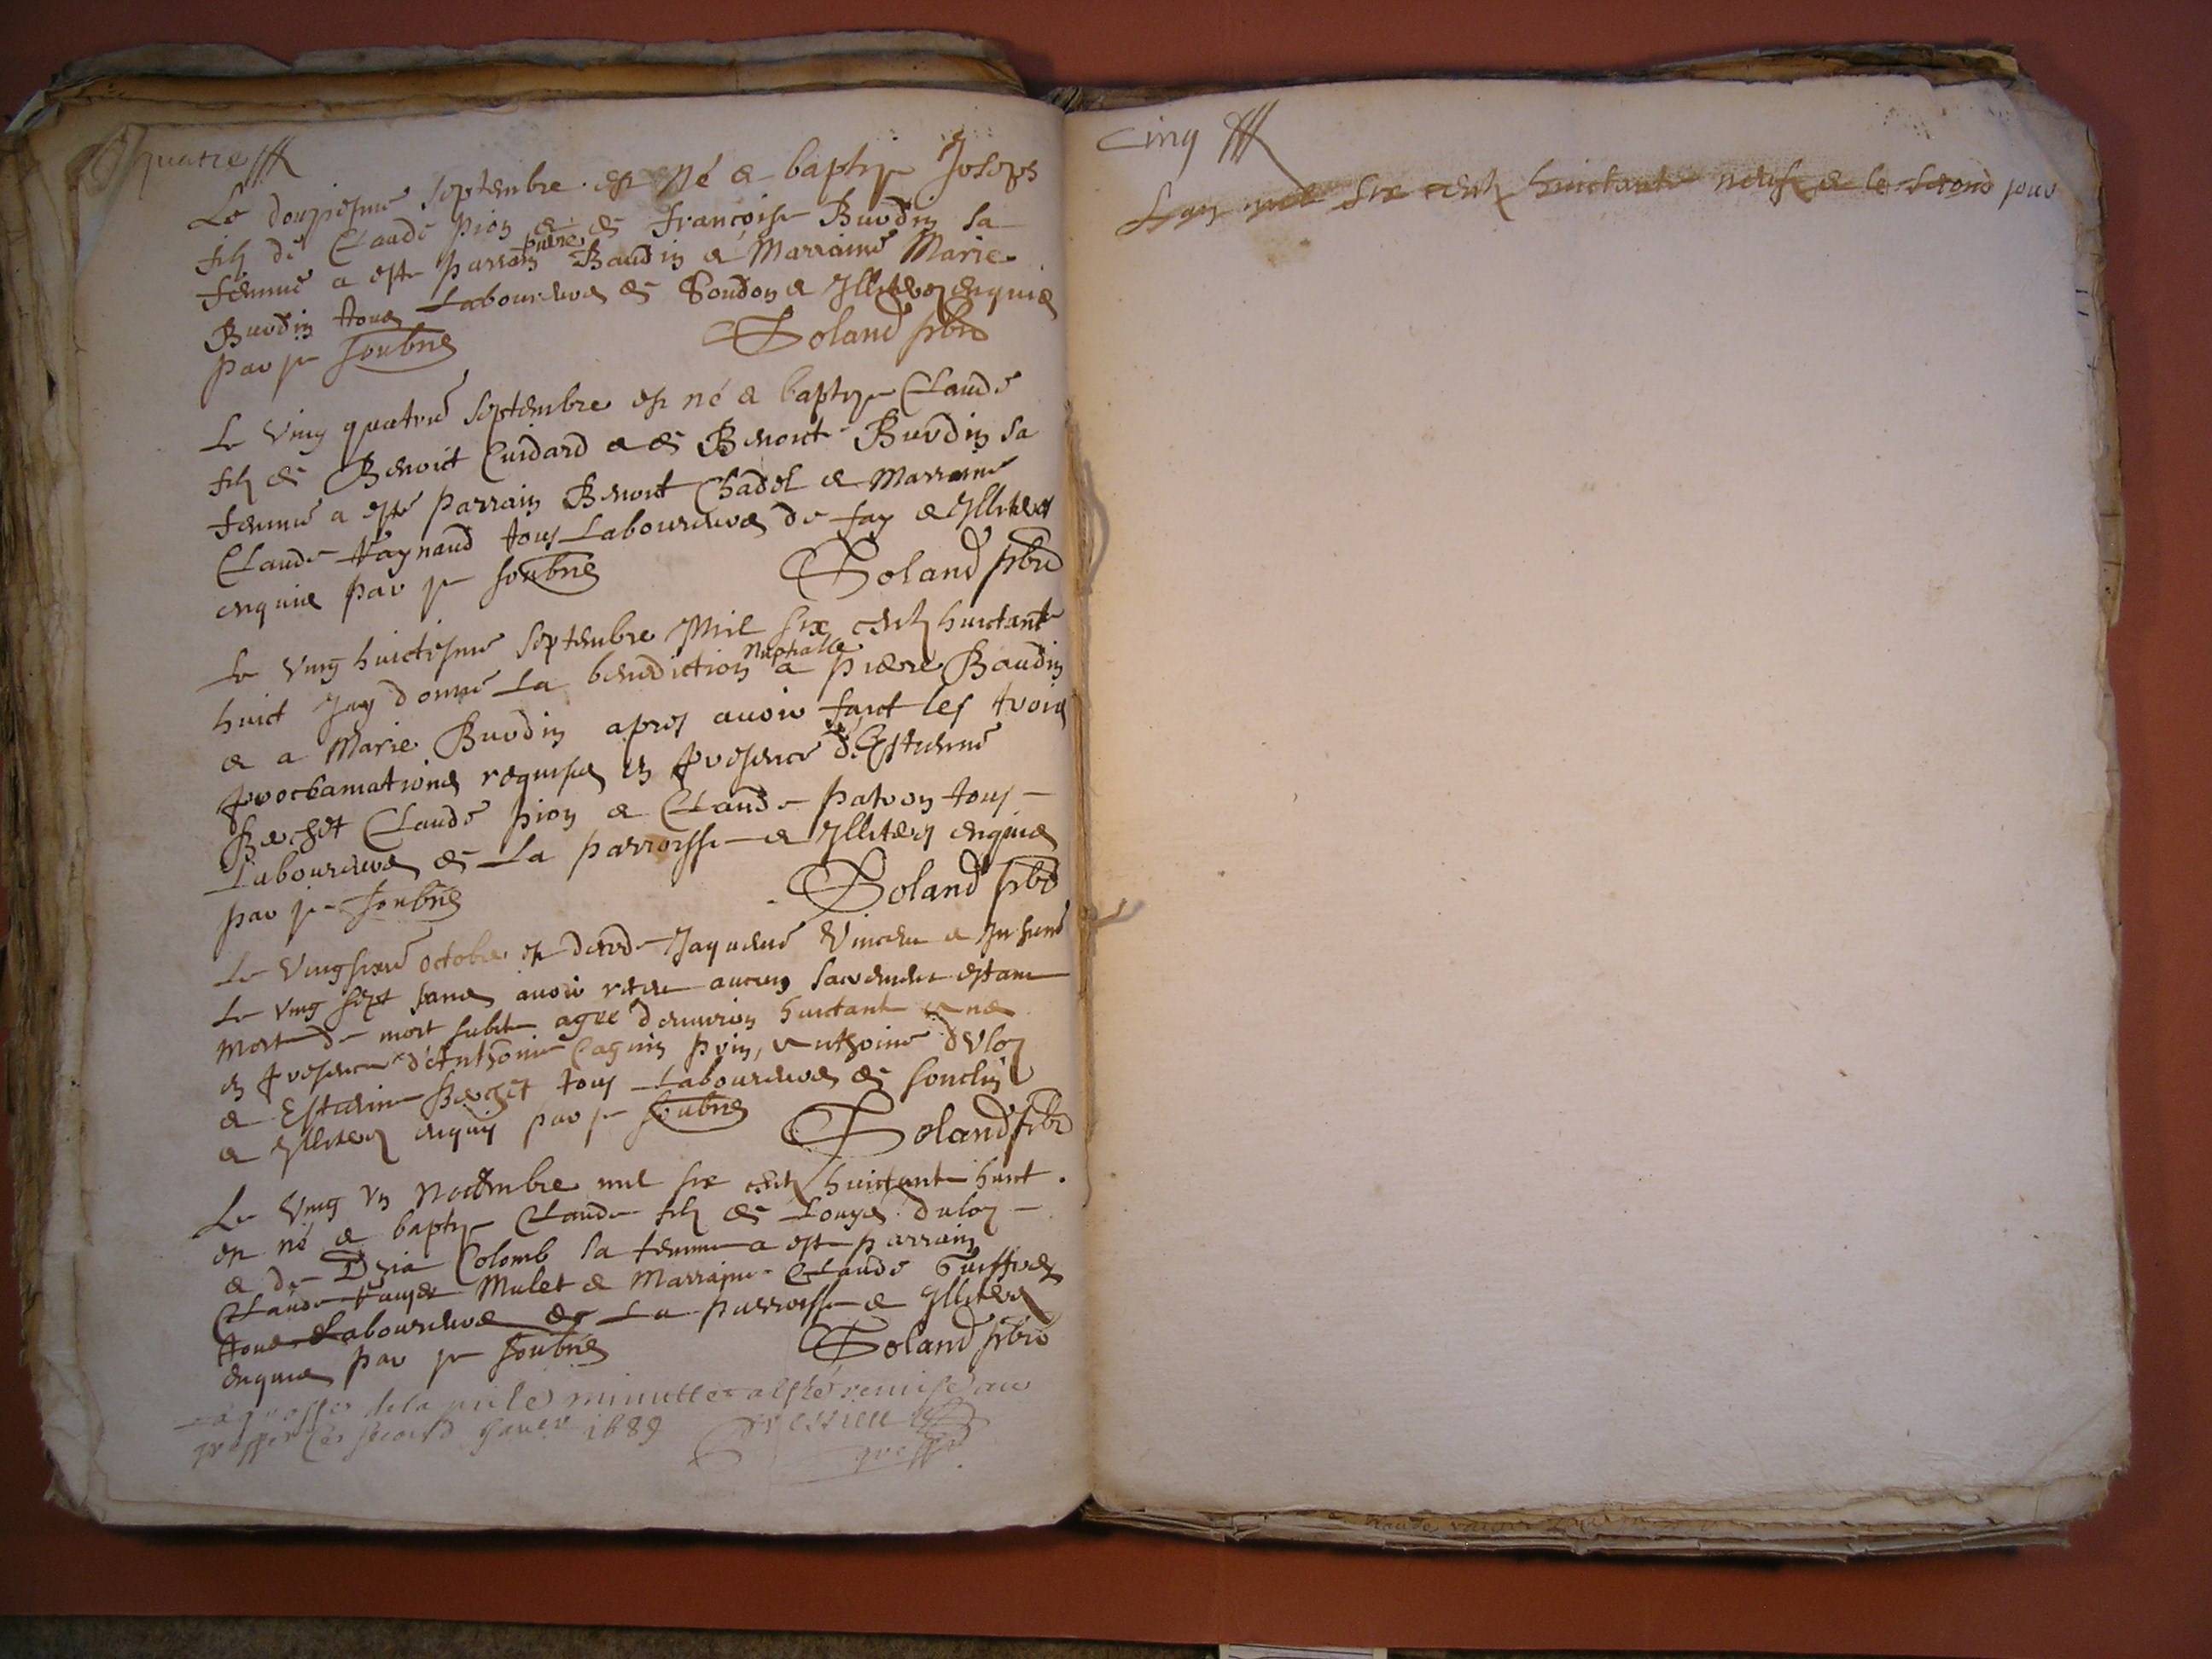 quatre
Le douziesme septembre est né & baptise Joseph
filz de Claude pion & de françoise Burdin sa
femme a este parrain piere Baudin & Marraine Marie
Burdin tous Laboureurs de & Illiteres enquis
par je soubne Soland pbre
Le Ving quatre septembre est né & baptise Claude
filz de Benoict Cuidard & de Benoict Burdin sa
femme a esté parrain Benoict Chadel & Marraine
Claude Raynaud tous Laboureurs de fay & Illiteres
enquis par je soubne Soland pbre
Le Ving huictiesme septembre Mil six centz huictante
huict Jay donné La benediction Nuptialle a piere Baudin
& a Marie Burdin apres auoir faict les trois
proclamations requises en presence d'Estienne
Berchet Claude pion & Claude patron tous
Laboureurs de La parroisse & Illiteres enquis
par je soubne Soland pbre
Le Ving sixie octobre est Jaquemé Vincen & Inhumé
Le ving sept sans auoir receu aucun sacrement estant
mort de mort subite agee d'enuiron huictante ans
en presence d'Anthoine Cagnin Anthoine duloz
& Estienne Berchet tous Laboureurs de
& Illiteres enquis par je soubne Soland pbre
Le Ving un Nouembre mil six centz huictante huict
est né & baptise Claude filz de Louys duloz
& de Colomb sa femme a este parrain
Claude Mulet & Marraine Claude
tous Laboureurs de La parroisse & Illiteres
enquis par je soubne Soland pbre
de la minutte a esté remise au
greffe Le second Janer 1689
greff
Cinq
L'an mil six centz huictante neuf & le second jour